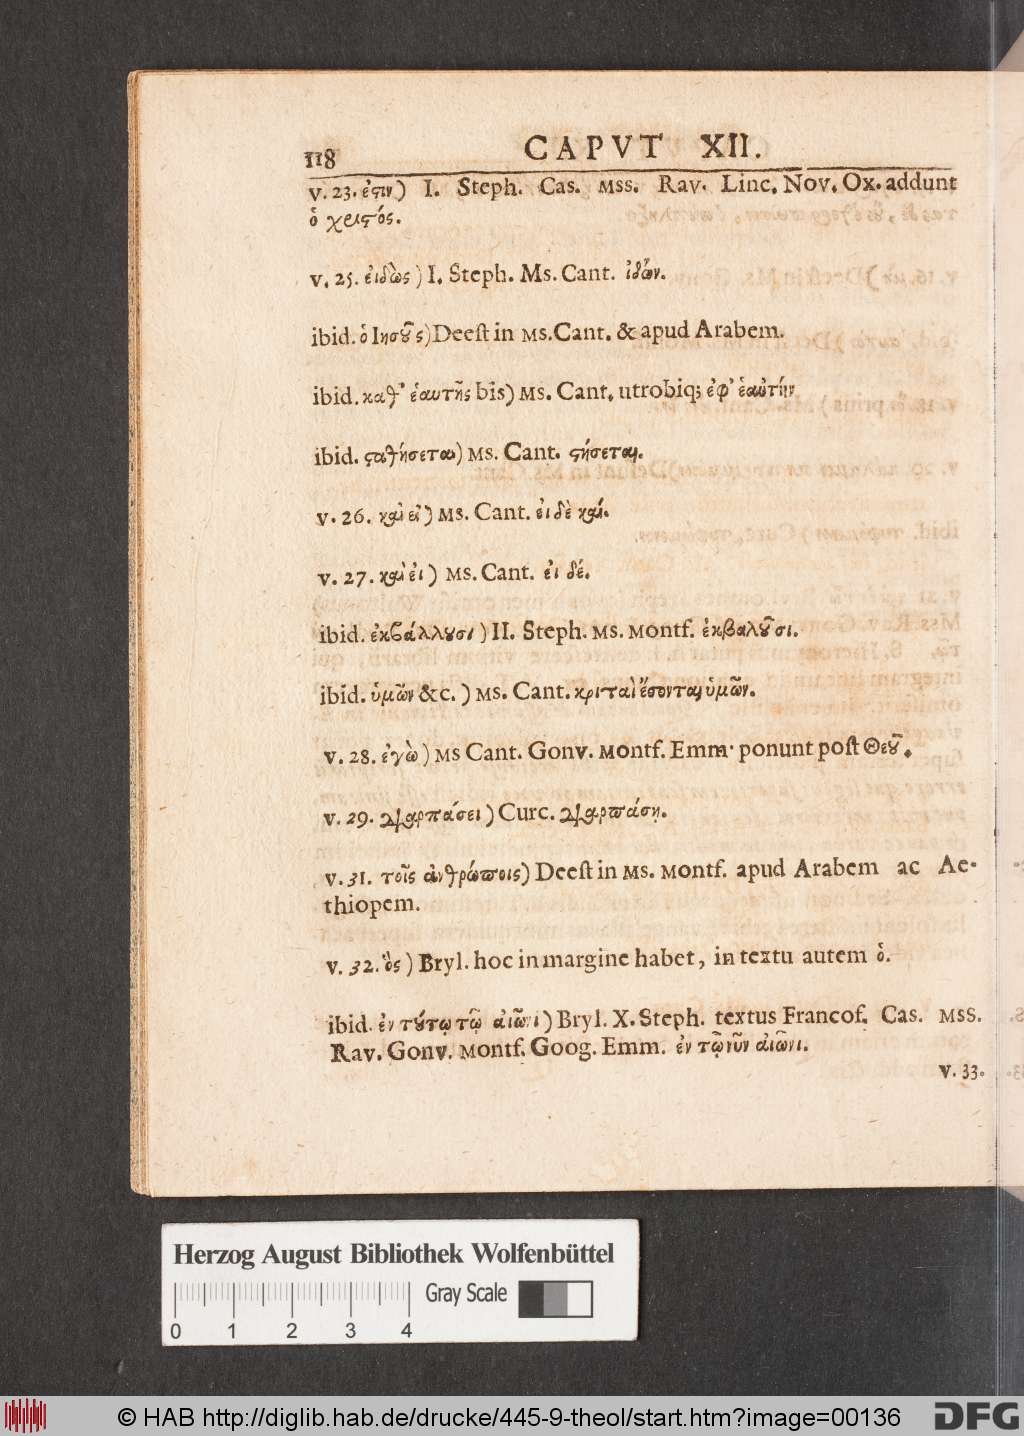 118 CAPVT XII.
v. 23. ἐϛιν) I. Steph. Cas. Mss. Rav. Linc. Nov. Ox. addunt
ὁ χριϛός.
v. 25. ἐιδὼς) I. Steph. Ms. Cant. ἰδὼν.
ibid. ὁ Ιησȣ͂ς) Deeſt in Ms. Cant. & apud Arabem.
ibid. καθ' ἑαυτῆς bis) Ms. Cant. utrobiq; ἐφ' ἑαὐτὴν
ibid. ϛαθήσεται) Ms. Cant. ϛήσεται.
v. 26. καὶ εἰ) Ms. Cant. ἐι δὲ καί.
v. 27. καὶ ἐι) Ms. Cant. ἐι δέ.
ibid. ἐκβάλλȣσι) II. Steph. Ms. Montf. ἐκβαλȣ͂σι.
ibid. ὑμῶν &c.) Ms. Cant. κριταὶ ἔσονται ὑμῶν.
v. 28. ἐγὼ) Ms Cant. Gonv. Montf. Emm. ponunt poſt Θεȣ͂.
v. 29. διαρπάσει) Curc. διαρπάσῃ.
v. 31. τοῖς ἀνθρώποις) Deeſt in Ms. Montf. apud Arabem ac Ae-
thiopem.
v. 32. ὃς) Bryl. hoc in margine habet, in textu autem ὁ.
ibid. ἐν τȣ́τῳ τῷ ἀιῶνι) Bryl. X. Steph. textus Francof. Cas. Mss.
Rav. Gonv. Montf. Goog. Emm. ἐν τῷ νῦν ἀιῶνι.
v. 33.
Herzog August Bibliothek Wolfenbüttel
Gray Scale
0 1 2 3 4
© HAB http://diglib.hab.de/drucke/445-9-theol/start.htm?image=00136 DFG